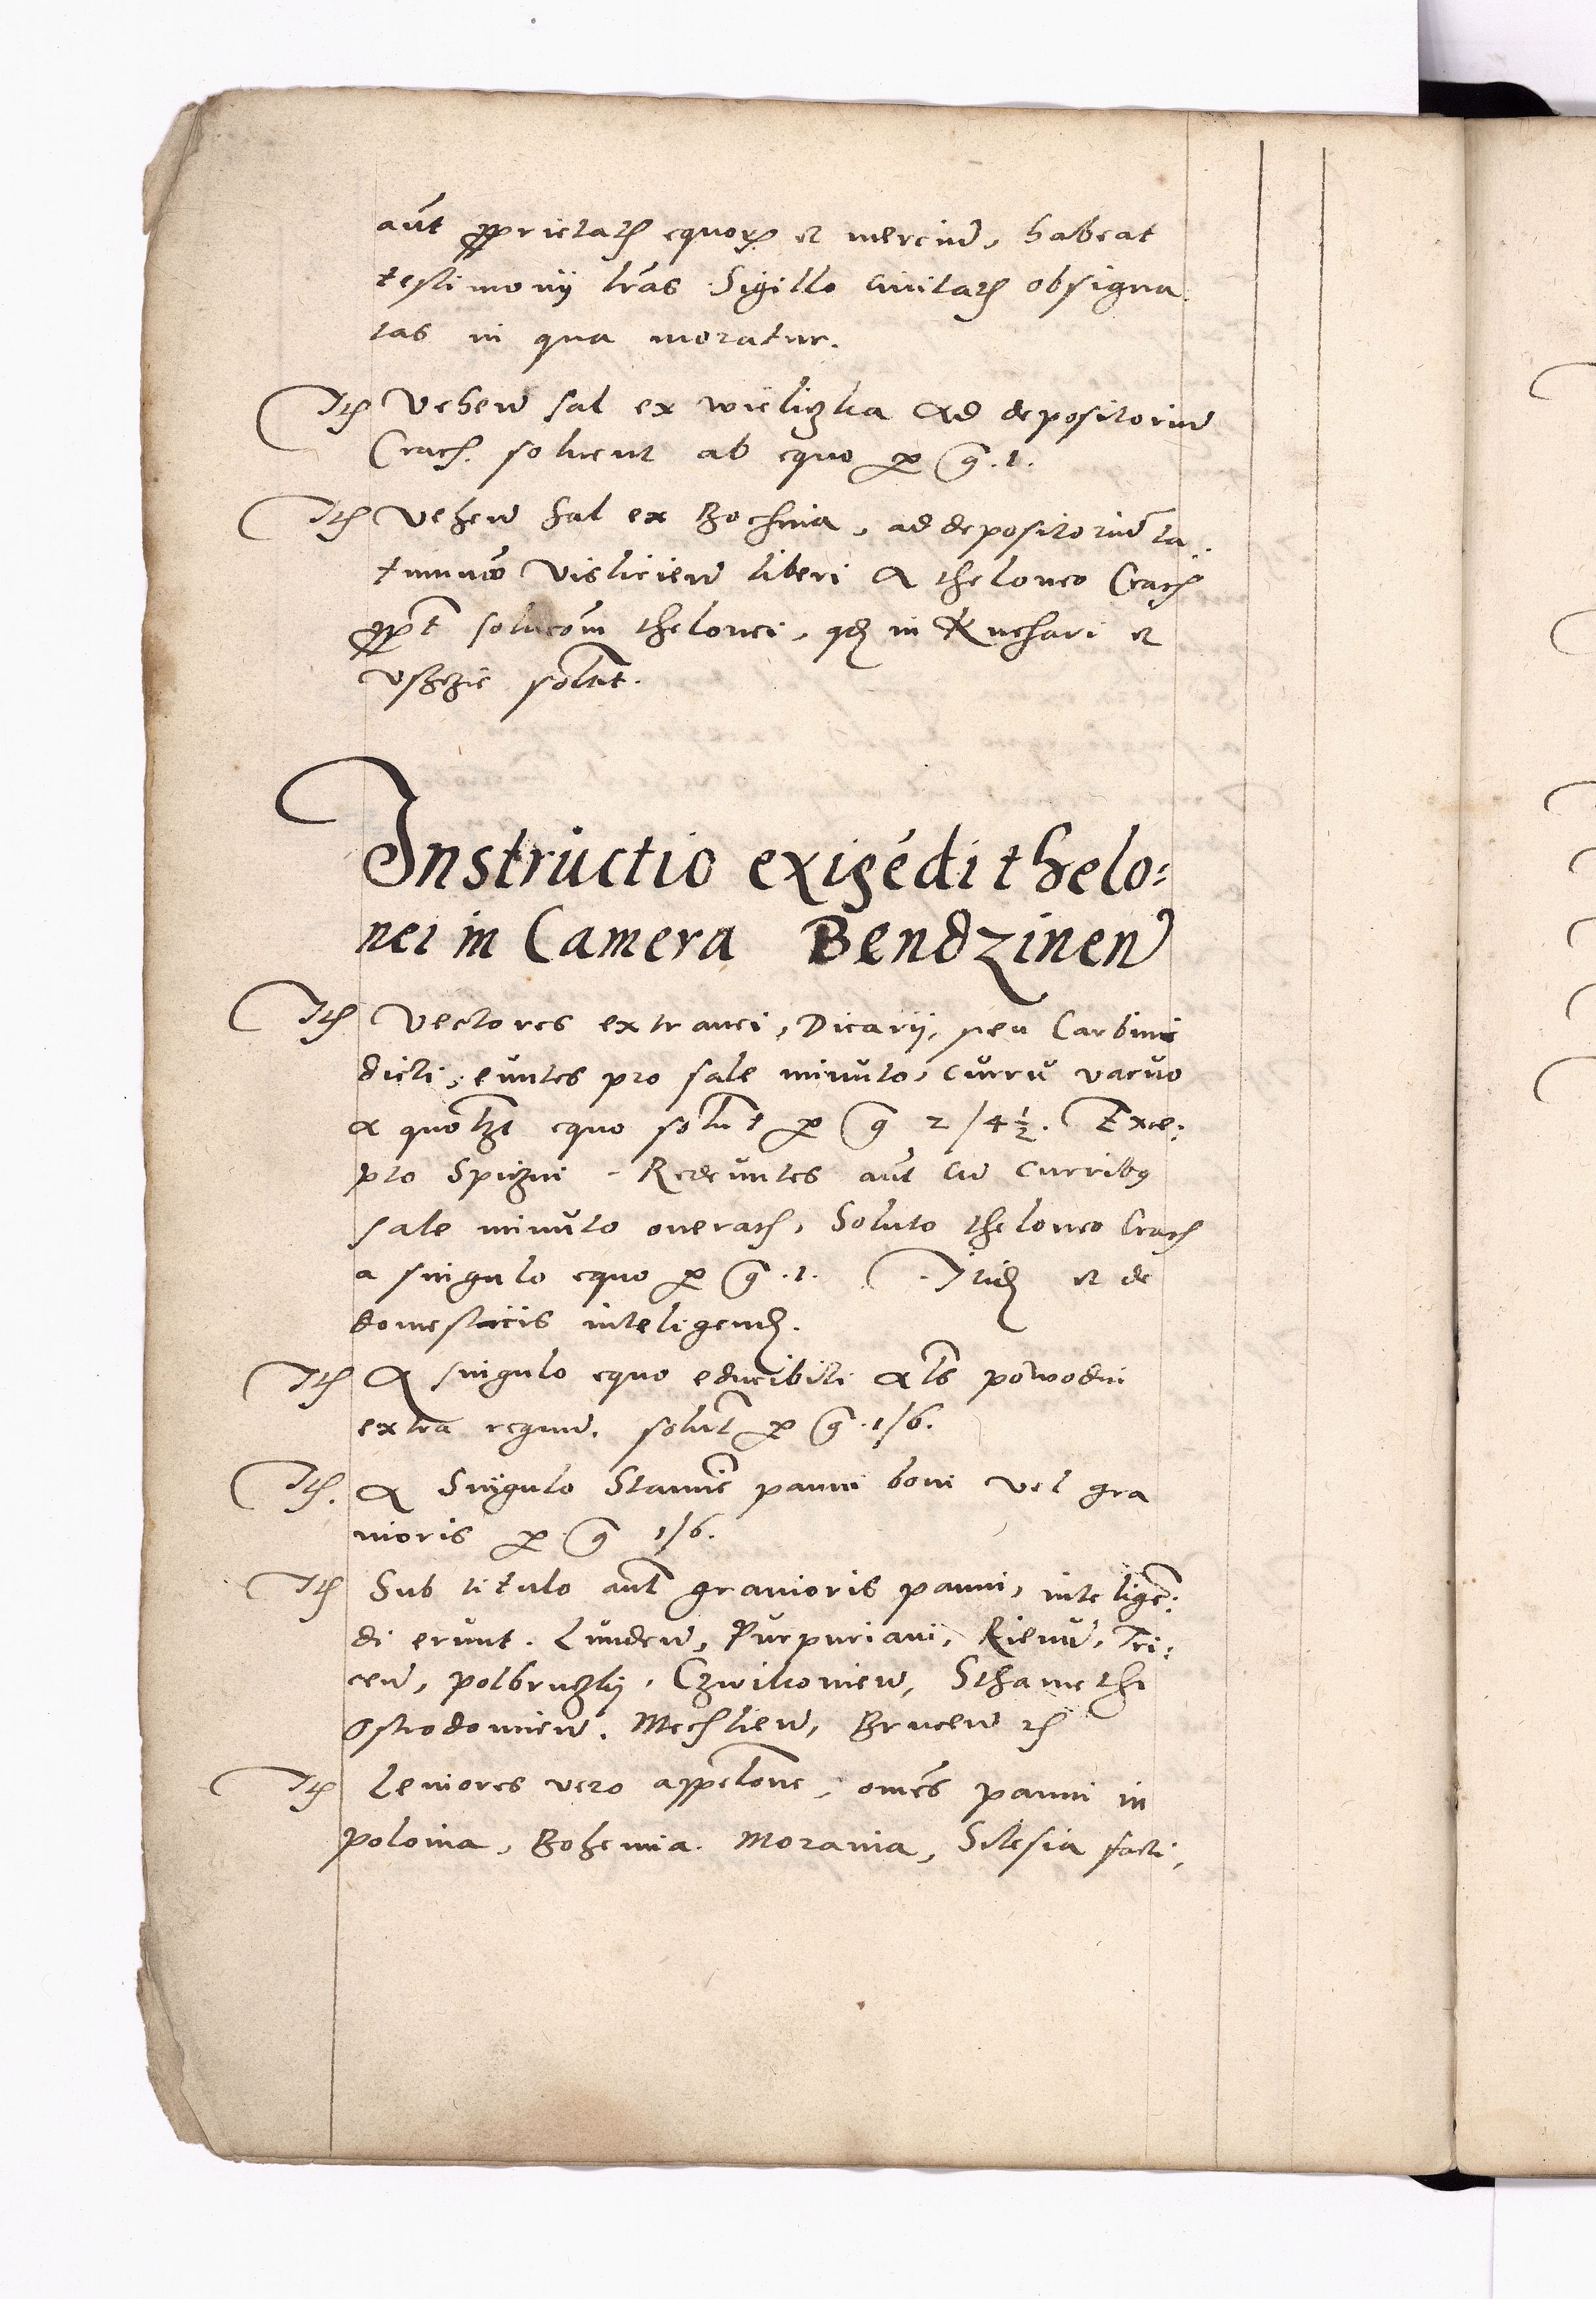 aūt proprietatꝭ equoꝝ et merciū, habeat
testimonij lr̄as Sigillo ciuitatꝭ obsigna
tas in qua moratur.
Itꝭ Veheñ sal ex wieliczka ad depositoriū
Cracꝭ. soluent ab equo ꝑ gͦ. 1.
Itꝭ Veheñ sal ex Bochnia, ad depositoriū la
Vislicieñ liberi a theloneo Cracꝭ
ꝓpt̄ solucōm thelonei, qđ in Kuchari et
Vsczie solūt.
Instructio exigēdi thelo:
nei in Camera Bendzineñ
Itꝭ Vectores extranei, Dicarij, seu Carbini
dicti, euntes pro sale minuto, curru vacuo
a quolꝫt equo solūt ꝑ gͦ 2/4½. Exce:
pto Spiczni - Redeuntes aūt cū curribꝰ
sale minuto oneratꝭ, Soluto theloneo Cracꝭ
a singulo equo ꝑ gͦ .1. Itidꝭ et de
domesticis inteligendꝭ.
Itꝭ A singulo equo educibili als powodni
extra regnū. solūt ꝑ gͦ .1/6.
Itꝭ. A Singulo Stamīe panni boni vel gra
uioris ꝑ gͦ 1/6.
Itꝭ Sub titulo aūt grauioris panni, intelligē:
di erunt. Lundeñ, Purpuriani, Rienñ, Tri:
ceñ, polbruczkij, Czwikouieñ, Sthamethi
Ostrodomieñ. Mechlieñ, Bruceñ ꝛc̄
Itꝭ Leuiores vero appellōne, om̄es panni in
polonia, Bohemia. Morauia, Silesia facti,